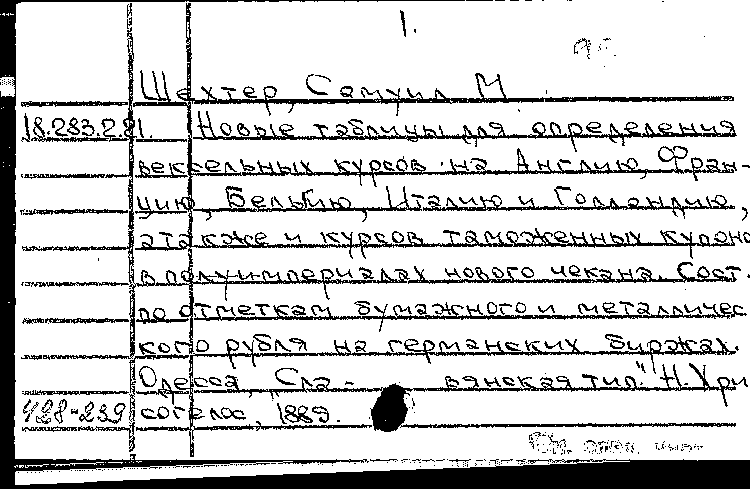 1.
Шехтер, Самуил М.
18.283.2.81. Новые таблицы для определения
вексельных курсов на Англию, Фран-
цию, Бельгию, Италию и Голландию,
а также и курсов таможенных купоно
в полуимпериалах нового чекана. Сост.
по отметкам бумажного и металличес
кого рубля на германских биржах.
Одесса, Сла- вянская тип. "Н. Хри
428-239 согелос, 1889.